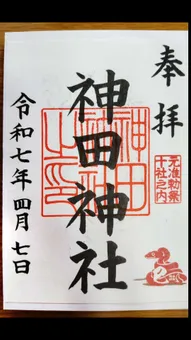 奉拝
元准勅祭
十社之内
神田神社
令和七年四月七日